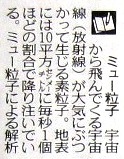 ミュー粒子　宇宙
から飛んでくる宇宙
線（放射線）が大気にぶつ
かって生じる素粒子。地表
には10平方センチに毎秒1個
ほどの割合で降り注いでい
る。ミュー粒子による解析